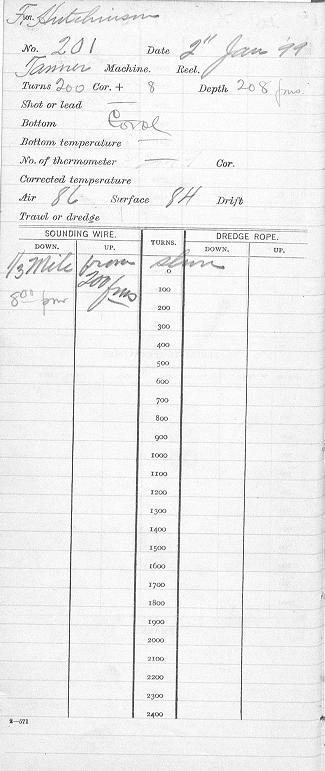 Fron. Hutchinson
No. 201 Date 2" Jan '99
Tanner Machine. Reel.
Turns 200 Cor. + 8 Depth 208 fms.
Shot or lead —
Bottom Coral
Bottom temperature —
No. of thermometer — Cor.
Corrected temperature
Air 86 Surface 84 Drift
Trawl or dredge
SOUNDING WIRE. TURNS. DREDGE ROPE.
DOWN. UP. DOWN. UP.
1/3 Mile from shore
0
200 fms
100
800 fms
200
300
400
500
600
700
800
900
1000
1100
1200
1300
1400
1500
1600
1700
1800
1900
2000
2100
2200
2300
2400
2—571